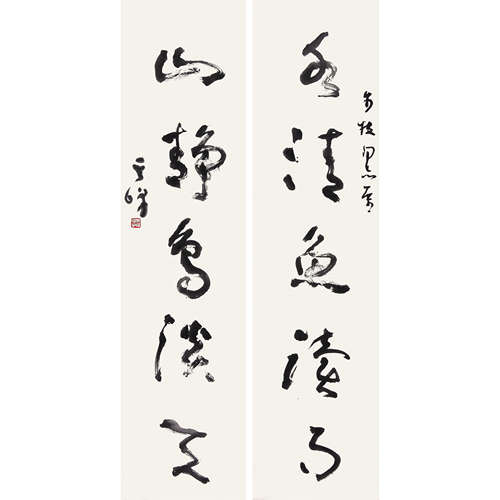 水清魚讀月
山靜鳥談天
其峰